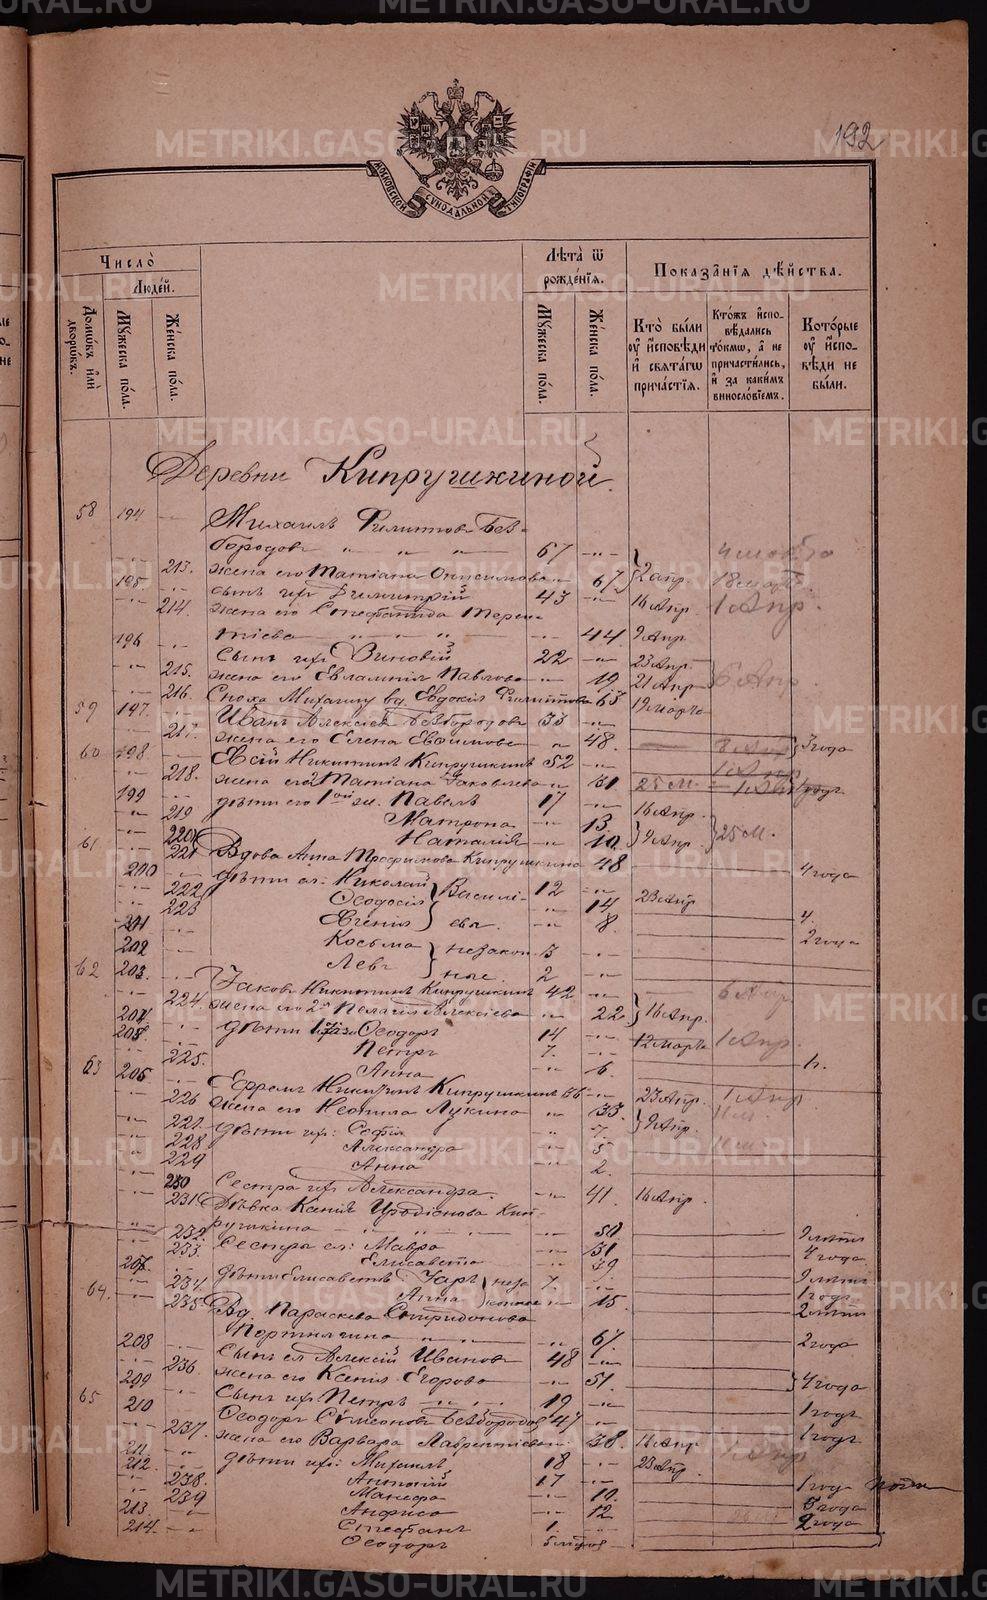 192
МОСКОВСКОЙ СУНОДАЛЬНОЙ ТИПОГРАФІИ
Число̀
Людей.
Домѡвъ или дворѡвъ.
Мꙋжеска пола.
Женска пола.
Лѣта ѿ рожденія.
Мꙋжеска пола.
Женска пола.
Показанія дѣйства.
Кто были оу исповѣди и свѧтагѡ причастія.
Ктожъ исповѣдались токмѡ, а не причастились, и за какимъ винословіемъ.
Которые оу исповѣди не были.
Деревни Кипрушкиной.
58 194 Михаилъ Филиппов Без-
бородовъ 67
213. жена его Татіана Онисимова 67 2 апр. 18 март
195. сынъ ихъ Димитрій 43 16 Апр 1 Апр.
214. жена его Стефанида Терен-
тіева 44 9 Апр
196 Сынъ ихъ Зиновій 22 23 Апр.
215. жена его Евлампія Павлова 19 21 Апр 6 Апр.
216. Сноха Михаилу вд. Евдокія Филиппова 63 19 Марта
59 197. Иванъ Алексіев Безбородовъ 33
217. жена его Елена Евфимова 48. 3 года
60 198. Евсій Никитинъ Кипрушкинъ 52
218. жена его 2 Татіана Іаковлева 61 25 М.
199 дѣти его 1ой ж. Павелъ 17 16 Апр.
219 Матрона 13.
220 Наталія 10 9 Апр. 25 М.
61 221 Вдова Анна Трофимова Кипрушкина 48 4 года
200 дѣти ея: Николай Василі- 12 23 Апр
222 Ѳеодосія 14
223 Евгенія евы. 8 4.
201 Косьма незакон- 5 2 года
202 Левъ ные 2
62 203. Іаковъ Никитинъ Кипрушкинъ 42 6 Апр
224. жена его 2я Пелагія Алексіева 22 16 Апр.
204 дѣти 1 Ѳеодоръ 14 12 Марта 1 Апр.
205. Петръ 7.
225. Анна 6.
63 206 Ефремъ Никитинъ Кипрушкинъ 36 23 Апр. 1 Апр
226 жена его Неонила Лукина 33. 9 Апр.
227. дѣти ихъ: Софія 7.
228 Александра 5
229 Анна 2.
230 Сестра ихъ Александра. 41. 16 Апр.
231 Дѣвка Ксенія Иродіонова Кип-
рушкина 50 9 лѣтъ
232. Сестры ея: Мавра 31 4 года
233. Елисавета 39
207. дѣти Елисаветы Уаръ неза- 7. 9 лѣтъ
234. Анна конные 15. 1 годъ
64. 235. Вд. Параскева Спиридонова 2 лѣтъ
Портнягина 67
208 Сынъ ея Алексій Ивановъ 48 2 года
236. жена его Ксенія Егорова 51.
209 Сынъ ихъ Петръ 19 4 года
65 210 Ѳеодоръ Симеоновъ Безбородовъ 47 1 годъ
237. жена его Варвара Лаврентіева 38. 16 Апр 1 Апр 1 годъ
211. дѣти ихъ: Михаилъ 18 23 Апр.
212. Антоній 17 1 годъ
238. Манефа 19.
239 Анфиса 12 5 года
213. Стефанъ 1. 2 года
214. Ѳеодоръ
METRIKI.GASO-URAL.RU